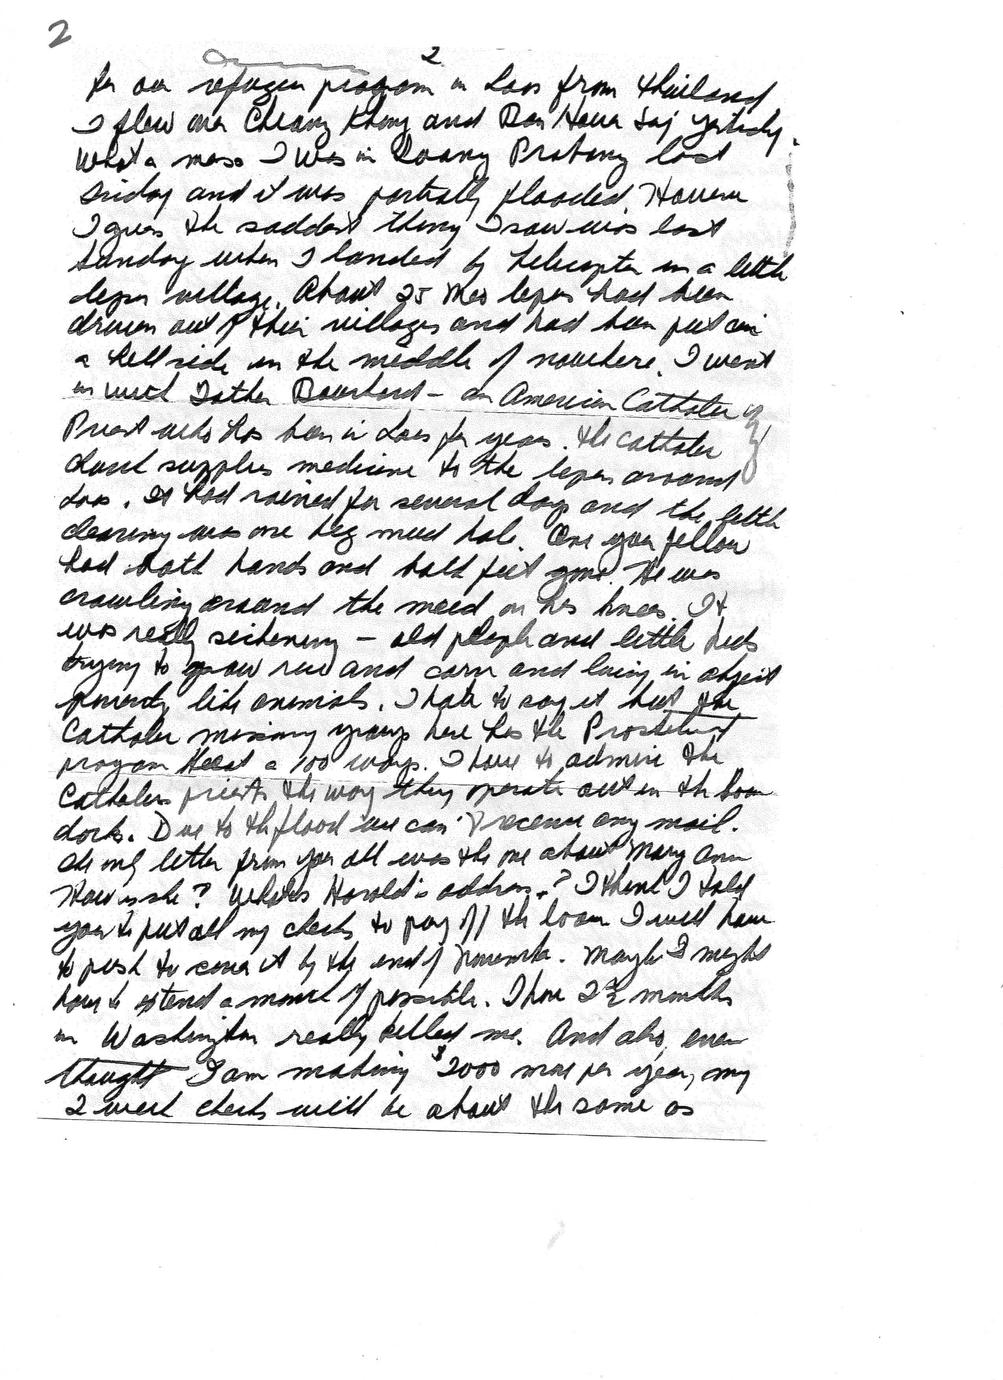 2
2
for our refugee program in Laos from Thailand
I flew over Chiang Khong and Ban Houei Sai yesterday.
What a mess I was in Luang Prabang last
Friday and it was partially flooded. However
I guess the saddest thing I saw was last
Sunday when I landed by helicopter in a little
leper village. About 25 Meo lepers had been
driven out of their villages and had been put on
a hillside in the middle of nowhere. I went
in with Father Bouchard - an American Catholic
Priest who has been in Laos for years. The Catholic
church supplies medicine to the lepers around
Laos. It had rained for several days and the little
clearing was one big mud hole. One young fellow
had both hands and both feet gone. He was
crawling around the mud on his knees. It
was really sickening - old people and little kids
trying to grow rice and corn and living in abject
poverty like animals. I hate to say it but the
Catholic missionary group here has the Protestant
program beat a 100 ways. I have to admire the
Catholics priests the way they operate out in the boon
docks. Due to the flood we can't receive any mail.
The only letter from you all was the one about Mary Ann
How is she? What's Harold's address? I think I told
you to put all my checks to pay off the loan I will have
to push to cover it by the end of November. Maybe I might
have to extend a month if possible. Those 2 1/2 months
in Washington really killed me. And also, even
though I am making $2000 more per year, my
2 week checks will be about the same as